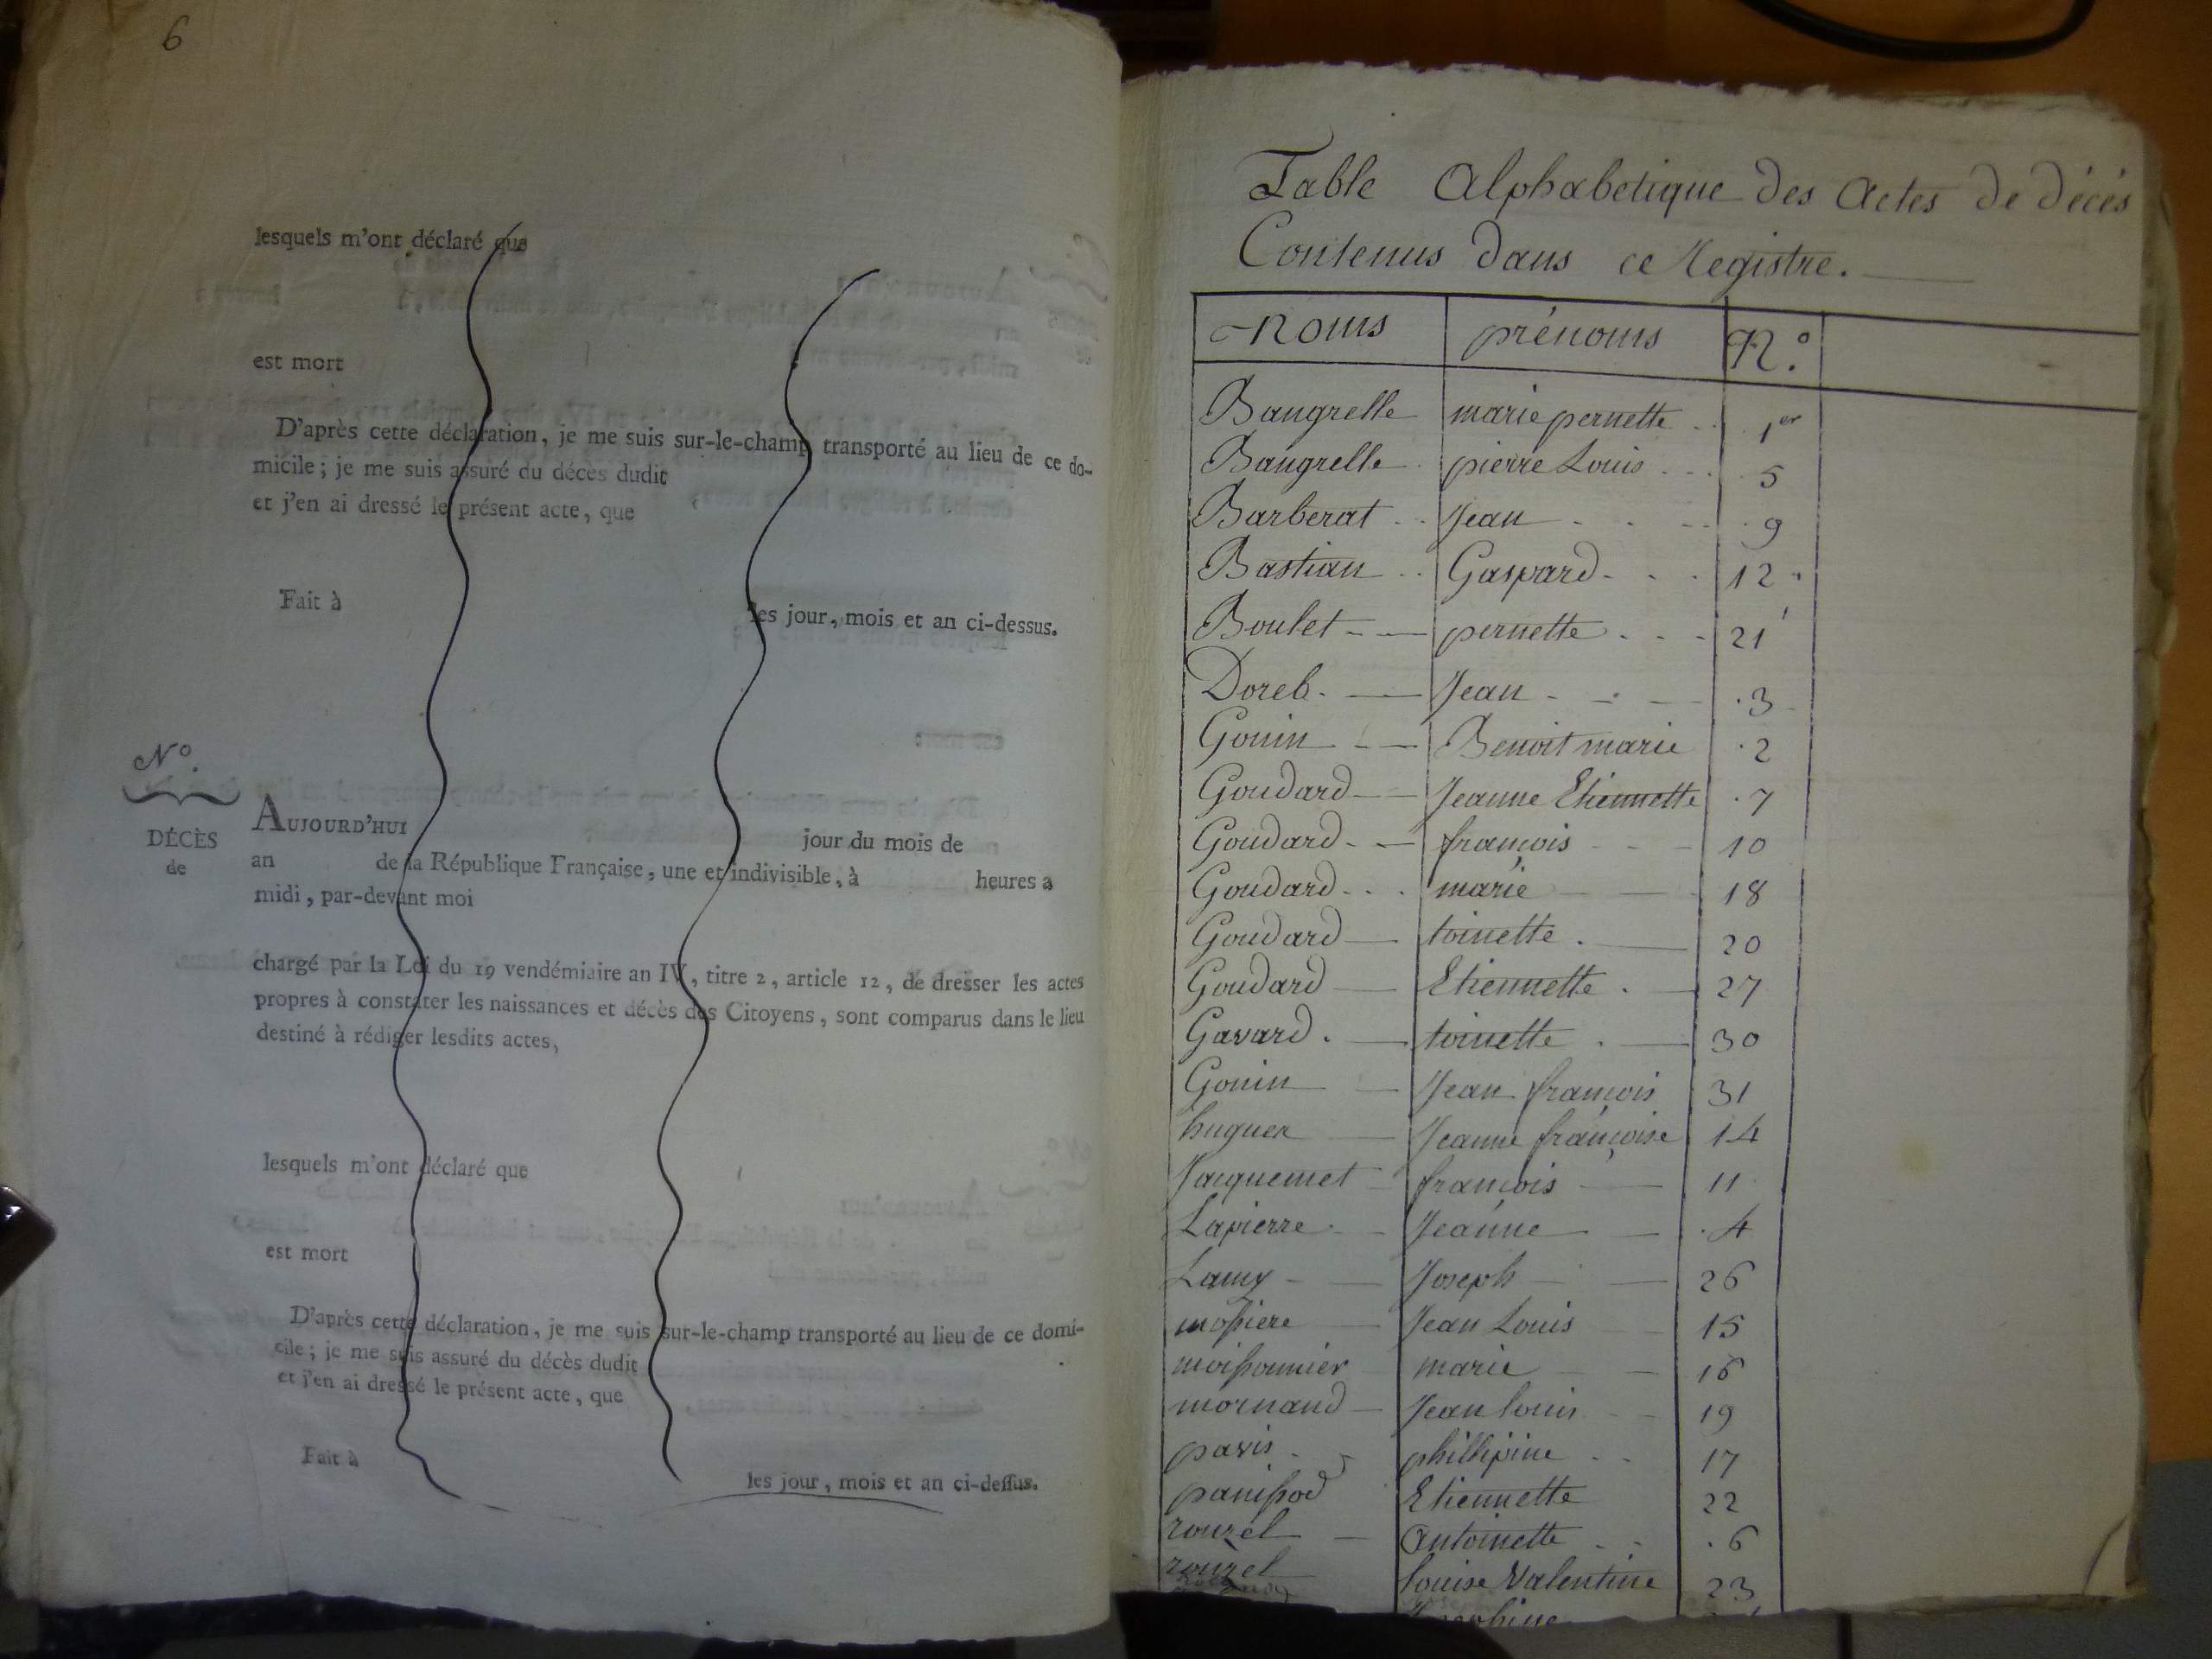 6
lesquels m'ont déclaré que
est mort
D'après cette déclaration, je me suis sur-le-champ transporté au lieu de ce do-
micile ; je me suis assuré du décès dudit
et j'en ai dressé le présent acte, que
Fait à les jour, mois et an ci-dessus.
N°.
DÉCÈS
de
AUJOURD'HUI jour du mois de
an de la République Française, une et indivisible, à heures a
midi, par-devant moi
chargé par la Loi du 19 vendémiaire an IV, titre 2, article 12, de dresser les actes
propres à constater les naissances et décès des Citoyens, sont comparus dans le lieu
destiné à rédiger lesdits actes,
lesquels m'ont déclaré que
est mort
D'après cette déclaration, je me suis sur-le-champ transporté au lieu de ce domi-
cile ; je me suis assuré du décès dudit
et j'en ai dressé le présent acte, que
Fait à
les jour, mois et an ci-dessus.
Table Alphabetique des Actes de décés
Contenus dans ce Registre.
Noms prénoms N°.
Baugrelle marie pernette 1er
Baugrelle pierre Louis 5
Barberat Jean 9
Bastian Gaspard 12
Boulet pernette 21
Doreb. Jean 3
Gonin Benoit marie 2
Goudard Jeanne Etiennette 7
Goudard françois 10
Goudard marie 18
Goudard toinette 20
Goudard Etiennette 27
Gavard toinette 30
Gonin Jean françois 31
huguen Jeanne françoise 14
Jacquemet françois 11
Lapierre Jeanne 4
Lamy Joseph 26
mossiere Jean Louis 15
moissonnier marie 16
mornand Jean louis 19
pavis phillipine 17
panissod Etiennette 22
rouzel Antoinette 6
rouzel louise Valentine 23